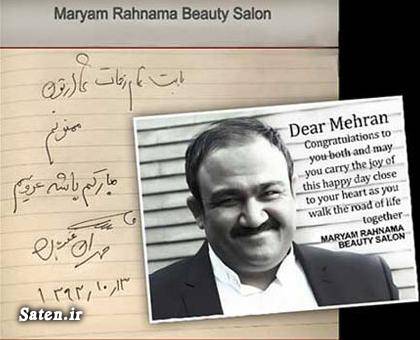 Maryam Rahnama Beauty Salon
بابت تمام زحمات
ممنونم
مبارکم باشه عروسیم
مهران
۱۳۹۲,۱۰,۱۳
Dear Mehran
Congratulations to
you both and may
you carry the joy of
this happy day close
to your heart as you
walk the road of life
together
MARYAM RAHNAMA
BEAUTY SALON
Saten.ir ساتین